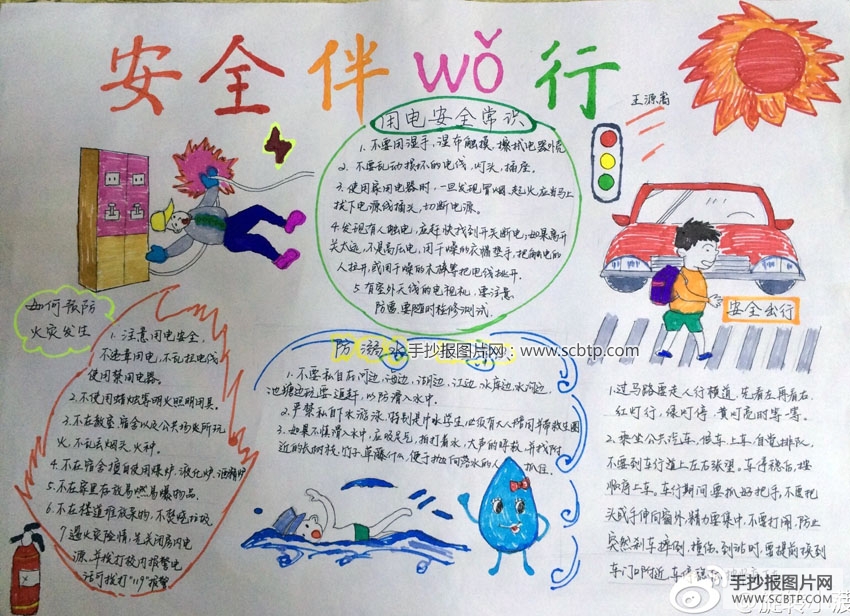 安全伴wǒ行
用电安全常识
1. 不要用湿手,湿布触摸,擦拭电器外壳
2. 不要乱动损坏的电线,灯头,插座。
3. 使用家用电器时,一旦发现冒烟,起火应当马上
拔下电源线插头,切断电源。
4. 发现有人触电,应赶快找到开关断电;如果离开
关太远,不是高压电,用干燥的衣播垫手,把触电的
人拉开,或用干燥的木棒等把电线挑开.
5. 有室外天线的电视机,要注意
防雷,要随时检修测试.
如何预防
火灾发生
1. 注意用电安全,
不违章用电,不乱拉电线
使用禁用电器。
2. 不使用蜡烛等明火照明用具。
3. 不在教室宿舍以及公共场所玩
火,不乱丢烟头,火种.
4. 不在宿舍擅自使用煤炉,液化炉,酒精炉
5. 不在家里存放易燃易爆物品.
6. 不在楼道堆放杂物,不焚烧垃圾
7. 遇火灾险情,先关闭房内电
源,并拨打校内报警电
话可拨打"119"报警
防溺水
手抄报图片网:www.scbtp.com
1. 不要私自在河边,海边,湖边,江边,水库边,水沟边,
池塘边玩要,追赶,以防滑入水中.
2. 严禁私自下水游泳,特别是中小学生,必须有大人陪同并带救生圈
3. 如果不慎滑入水中,应吸足气,拍打着水,大声的呼救,并找附
近的长树枝,竹子,草藤什么,便于拉向落水的人
安全出行
1. 过马路要走人行横道,先看左再看右,
红灯行,绿灯停,黄灯亮时等一等。
2. 乘坐公共汽车,候车上车,自觉排队,
不要到车行道上左右张望。车停稳后,按
顺序上车。车行期间要抓好把手,不要把
头或手伸向窗外,精力要集中,不要打闹,防止
突然刹车摔倒,撞伤。到站时,要提前换到
车门口附近,车停稳
手抄报图片网
WWW.SCBTP.COM